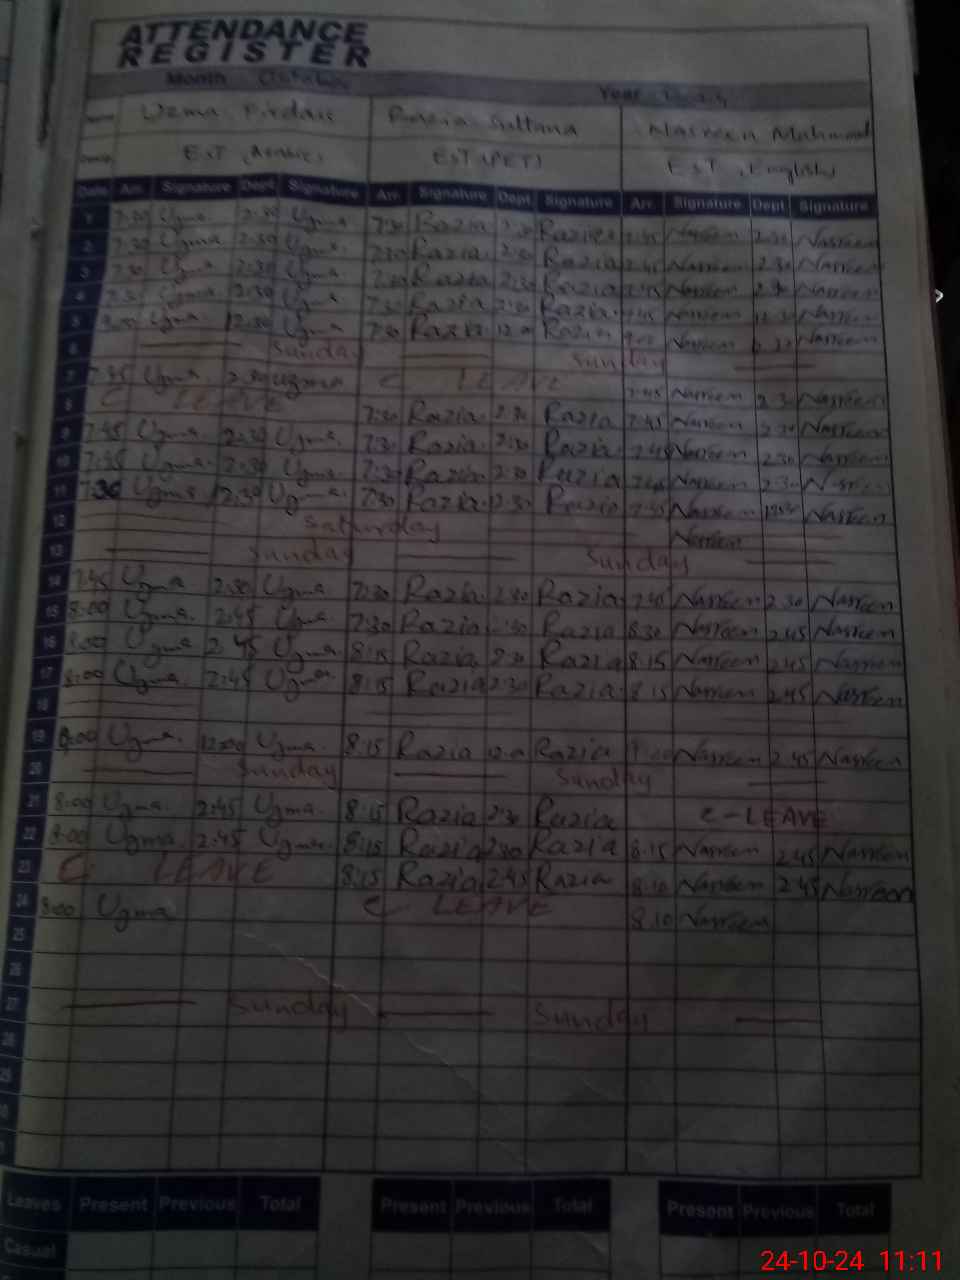 ATTENDANCE
REGISTER
Month October Year
Name Uzma Firdais Razia Sultana Nasreen Mahmood
EST (Arabic) EST (PET) EST (English)
Date Arr. Signature Dept Signature Arr. Signature Dept. Signature Arr. Signature Dept. Signature
1 7:30 Uzma 2:30 Uzma 7:30 Razia Razia Nasreen 2:30 Nasreen
2 7:30 Uzma 2:30 Uzma 7:30 Razia 2:30 Razia 7:45 Nasreen 2:30 Nasreen
3 7:30 Uzma 2:30 Uzma 7:30 Razia 2:30 Razia Nasreen 2:30 Nasreen
4 7:30 Uzma 2:30 Uzma 7:30 Razia 2:30 Razia Nasreen Nasreen
5 8:00 Uzma 12:30 Uzma 7:30 Razia Razia Nasreen Nasreen
6 Sunday Sunday
7 7:45 Uzma 2:30 Uzma C LEAVE 7:45 Nasreen 2:30 Nasreen
8 C LEAVE 7:30 Razia 2:30 Razia 7:45 Nasreen Nasreen
9 7:45 Uzma 2:30 Uzma 7:30 Razia 2:30 Razia 7:45 Nasreen 2:30 Nasreen
10 7:45 Uzma 2:30 Uzma 7:30 Razia 2:30 Razia 7:45 Nasreen 2:30 Nasreen
11 7:30 Uzma 12:30 Uzma 7:30 Razia 12:30 Razia 7:45 Nasreen 12:30 Nasreen
12 Saturday Nasreen
13 Sunday Sunday
14 7:45 Uzma 2:30 Uzma 7:30 Razia 2:30 Razia 7:45 Nasreen 2:30 Nasreen
15 8:00 Uzma 2:45 Uzma 7:30 Razia 2:30 Razia 8:30 Nasreen 2:45 Nasreen
16 8:00 Uzma 2:45 Uzma 8:15 Razia 2:30 Razia 8:15 Nasreen 2:45 Nasreen
17 8:00 Uzma 2:45 Uzma 8:15 Razia 2:30 Razia 8:15 Nasreen 2:45 Nasreen
18
19 8:00 Uzma 12:00 Uzma 8:15 Razia Razia Nasreen 2:45 Nasreen
20 Sunday Sunday
21 8:00 Uzma 2:45 Uzma 8:15 Razia 2:30 Razia C-LEAVE
22 8:00 Uzma 2:45 Uzma 8:15 Razia 2:30 Razia 8:15 Nasreen 2:45 Nasreen
23 C LEAVE 8:15 Razia 2:45 Razia 8:10 Nasreen 2:45 Nasreen
24 8:00 Uzma C LEAVE 8.10 Nasreen
25
26
27 Sunday Sunday
28
29
Leaves Present Previous Total Present Previous Total Present Previous Total
Casual
24-10-24 11:11